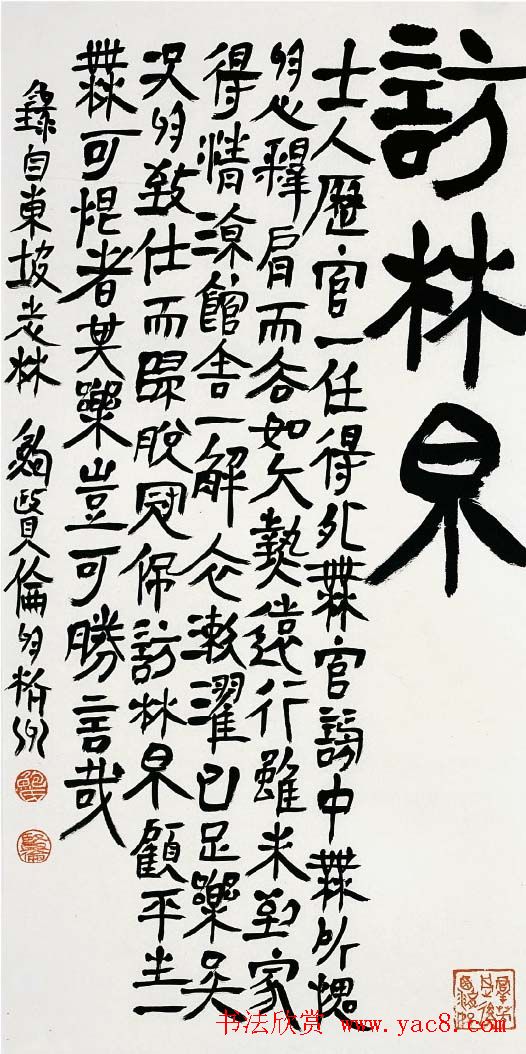 訪林泉
士人歷官一任得外無官謗中無所愧
於心釋肩而去如大熱遠行雖未到家
得清涼館舍一解衣漱濯已足樂矣
況於致仕而歸脫冠佩訪林泉顧平生一
無可恨者其樂豈可勝言哉
錄自東坡志林 鮑賢倫於杭州
鮑氏
賢倫
书法欣赏 www.yac8.com